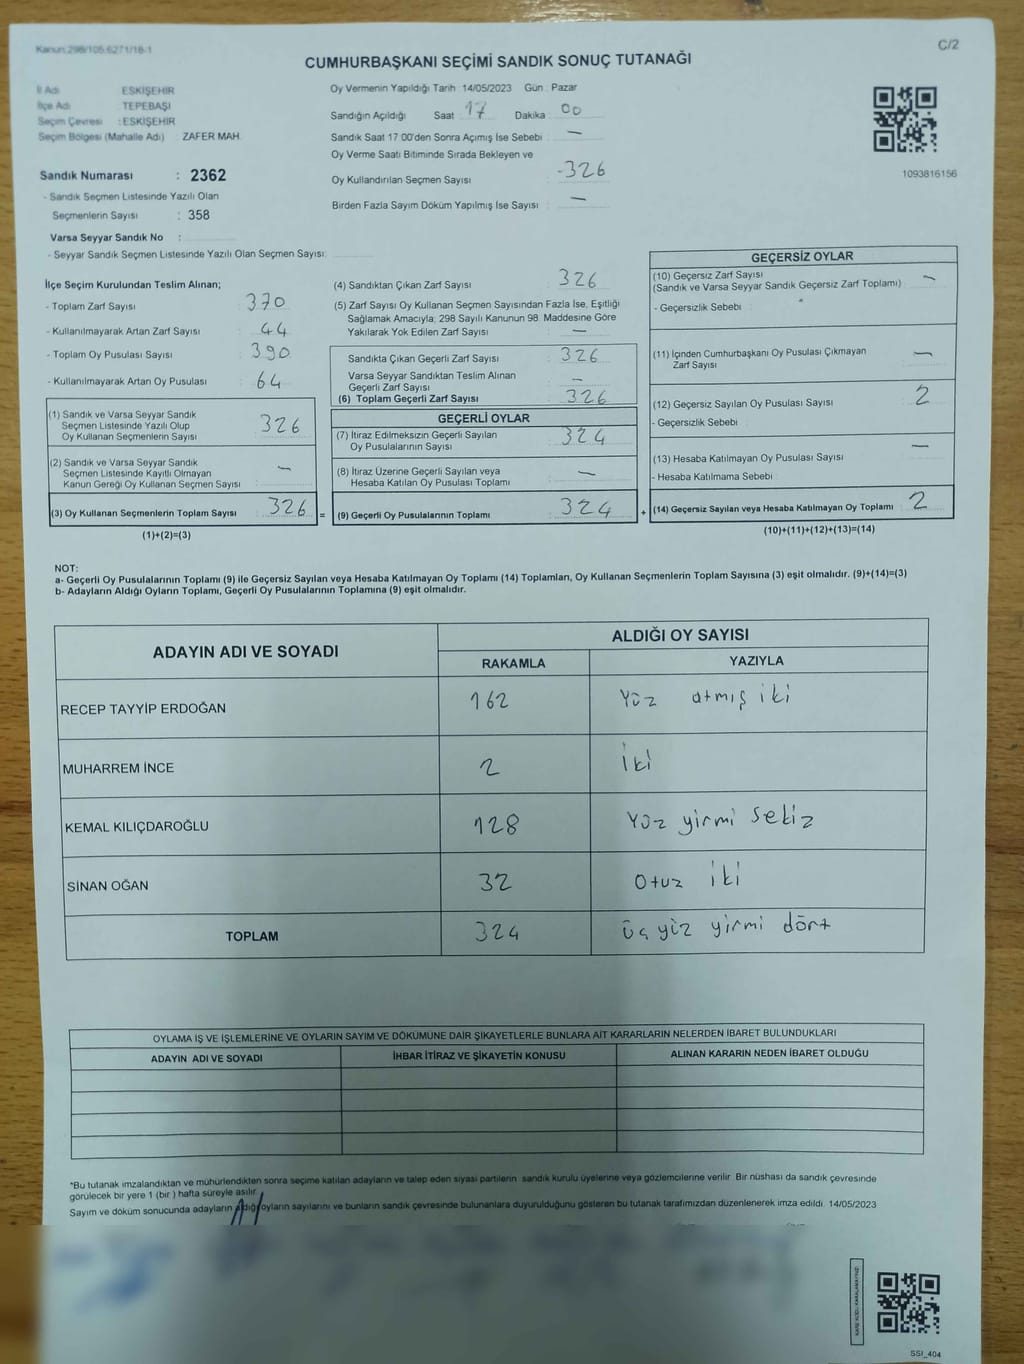 Kanun:298/105,6271/18-1
C/2
CUMHURBAŞKANI SEÇİMİ SANDIK SONUÇ TUTANAĞI
İl Adı : ESKİŞEHİR
İlçe Adı : TEPEBAŞI
Seçim Çevresi : ESKİŞEHİR
Seçim Bölgesi (Mahalle Adı) : ZAFER MAH.
Sandık Numarası : 2362
- Sandık Seçmen Listesinde Yazılı Olan
Seçmenlerin Sayısı : 358
Varsa Seyyar Sandık No :
- Seyyar Sandık Seçmen Listesinde Yazılı Olan Seçmen Sayısı:
Oy Vermenin Yapıldığı Tarih : 14/05/2023 Gün : Pazar
Sandığın Açıldığı Saat : 17 Dakika : 00
Sandık Saat 17:00'den Sonra Açımış İse Sebebi : —
Oy Verme Saati Bitiminde Sırada Bekleyen ve
Oy Kullandırılan Seçmen Sayısı : -326
Birden Fazla Sayım Döküm Yapılmış İse Sayısı : —
1093816156
İlçe Seçim Kurulundan Teslim Alınan;
- Toplam Zarf Sayısı : 370
- Kullanılmayarak Artan Zarf Sayısı : 44
- Toplam Oy Pusulası Sayısı : 390
- Kullanılmayarak Artan Oy Pusulası : 64
(1) Sandık ve Varsa Seyyar Sandık
Seçmen Listesinde Yazılı Olup
Oy Kullanan Seçmenlerin Sayısı : 326
(2) Sandık ve Varsa Seyyar Sandık
Seçmen Listesinde Kayıtlı Olmayan
Kanun Gereği Oy Kullanan Seçmen Sayısı : —
(3) Oy Kullanan Seçmenlerin Toplam Sayısı : 326 =
(1)+(2)=(3)
(4) Sandıktan Çıkan Zarf Sayısı : 326
(5) Zarf Sayısı Oy Kullanan Seçmen Sayısından Fazla İse, Eşitliği
Sağlamak Amacıyla; 298 Sayılı Kanunun 98. Maddesine Göre
Yakılarak Yok Edilen Zarf Sayısı : —
Sandıkta Çıkan Geçerli Zarf Sayısı : 326
Varsa Seyyar Sandıktan Teslim Alınan
Geçerli Zarf Sayısı : —
(6) Toplam Geçerli Zarf Sayısı : 326
GEÇERLİ OYLAR
(7) İtiraz Edilmeksizin Geçerli Sayılan
Oy Pusulalarının Sayısı : 324
(8) İtiraz Üzerine Geçerli Sayılan veya
Hesaba Katılan Oy Pusulası Toplamı : —
(9) Geçerli Oy Pusulalarının Toplamı : 324 +
GEÇERSİZ OYLAR
(10) Geçersiz Zarf Sayısı
(Sandık ve Varsa Seyyar Sandık Geçersiz Zarf Toplamı) : —
- Geçersizlik Sebebi :
(11) İçinden Cumhurbaşkanı Oy Pusulası Çıkmayan
Zarf Sayısı : —
(12) Geçersiz Sayılan Oy Pusulası Sayısı : 2
- Geçersizlik Sebebi :
(13) Hesaba Katılmayan Oy Pusulası Sayısı : —
- Hesaba Katılmama Sebebi :
(14) Geçersiz Sayılan veya Hesaba Katılmayan Oy Toplamı : 2
(10)+(11)+(12)+(13)=(14)
NOT:
a- Geçerli Oy Pusulalarının Toplamı (9) ile Geçersiz Sayılan veya Hesaba Katılmayan Oy Toplamı (14) Toplamları, Oy Kullanan Seçmenlerin Toplam Sayısına (3) eşit olmalıdır. (9)+(14)=(3)
b- Adayların Aldığı Oyların Toplamı, Geçerli Oy Pusulalarının Toplamına (9) eşit olmalıdır.
ADAYIN ADI VE SOYADI
ALDIĞI OY SAYISI
RAKAMLA YAZIYLA
RECEP TAYYİP ERDOĞAN 162 Yüz atmış iki
MUHARREM İNCE 2 İki
KEMAL KILIÇDAROĞLU 128 Yüz yirmi sekiz
SİNAN OĞAN 32 Otuz İki
TOPLAM 324 üç yüz yirmi dört
OYLAMA İŞ VE İŞLEMLERİNE VE OYLARIN SAYIM VE DÖKÜMÜNE DAİR ŞİKAYETLERLE BUNLARA AİT KARARLARIN NELERDEN İBARET BULUNDUKLARI
ADAYIN ADI VE SOYADI İHBAR İTİRAZ VE ŞİKAYETİN KONUSU ALINAN KARARIN NEDEN İBARET OLDUĞU
*Bu tutanak imzalandıktan ve mühürlendikten sonra seçime katılan adayların ve talep eden siyasi partilerin sandık kurulu üyelerine veya gözlemcilerine verilir. Bir nüshası da sandık çevresinde
görülecek bir yere 1 (bir ) hafta süreyle asılır.
Sayım ve döküm sonucunda adayların aldığı oyların sayılarını ve bunların sandık çevresinde bulunanlara duyurulduğunu gösteren bu tutanak tarafımızdan düzenlenerek imza edildi. 14/05/2023
SSI_404